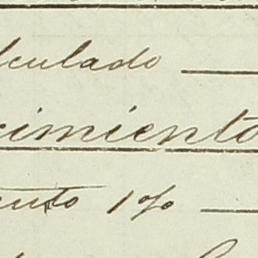 lculado
cimiento
ento 1%